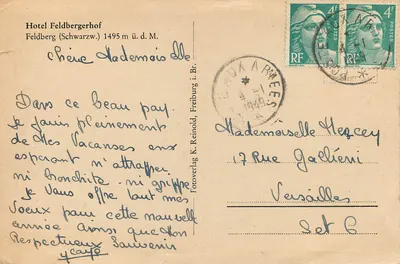 Hotel Feldbergerhof
Feldberg (Schwarzw.) 1495 m ü. d. M.
Chère Mademoiselle
Dans ce beau pay.
Je jouis pleinement
de Mes Vacances en
esperant n'attrapper
ni bronchite. ni grippe
je Vous offre tout mes
Voeux pour cette nouvelle
année Aussi que Mon
Respectueux Souvenir
Fotoverlag K. Reinold, Freiburg i. Br.
POSTE AUX ARMEES
4F
RF
4F
RF
Mademoiselle
17 Rue Gallieni
Versailles
Set O